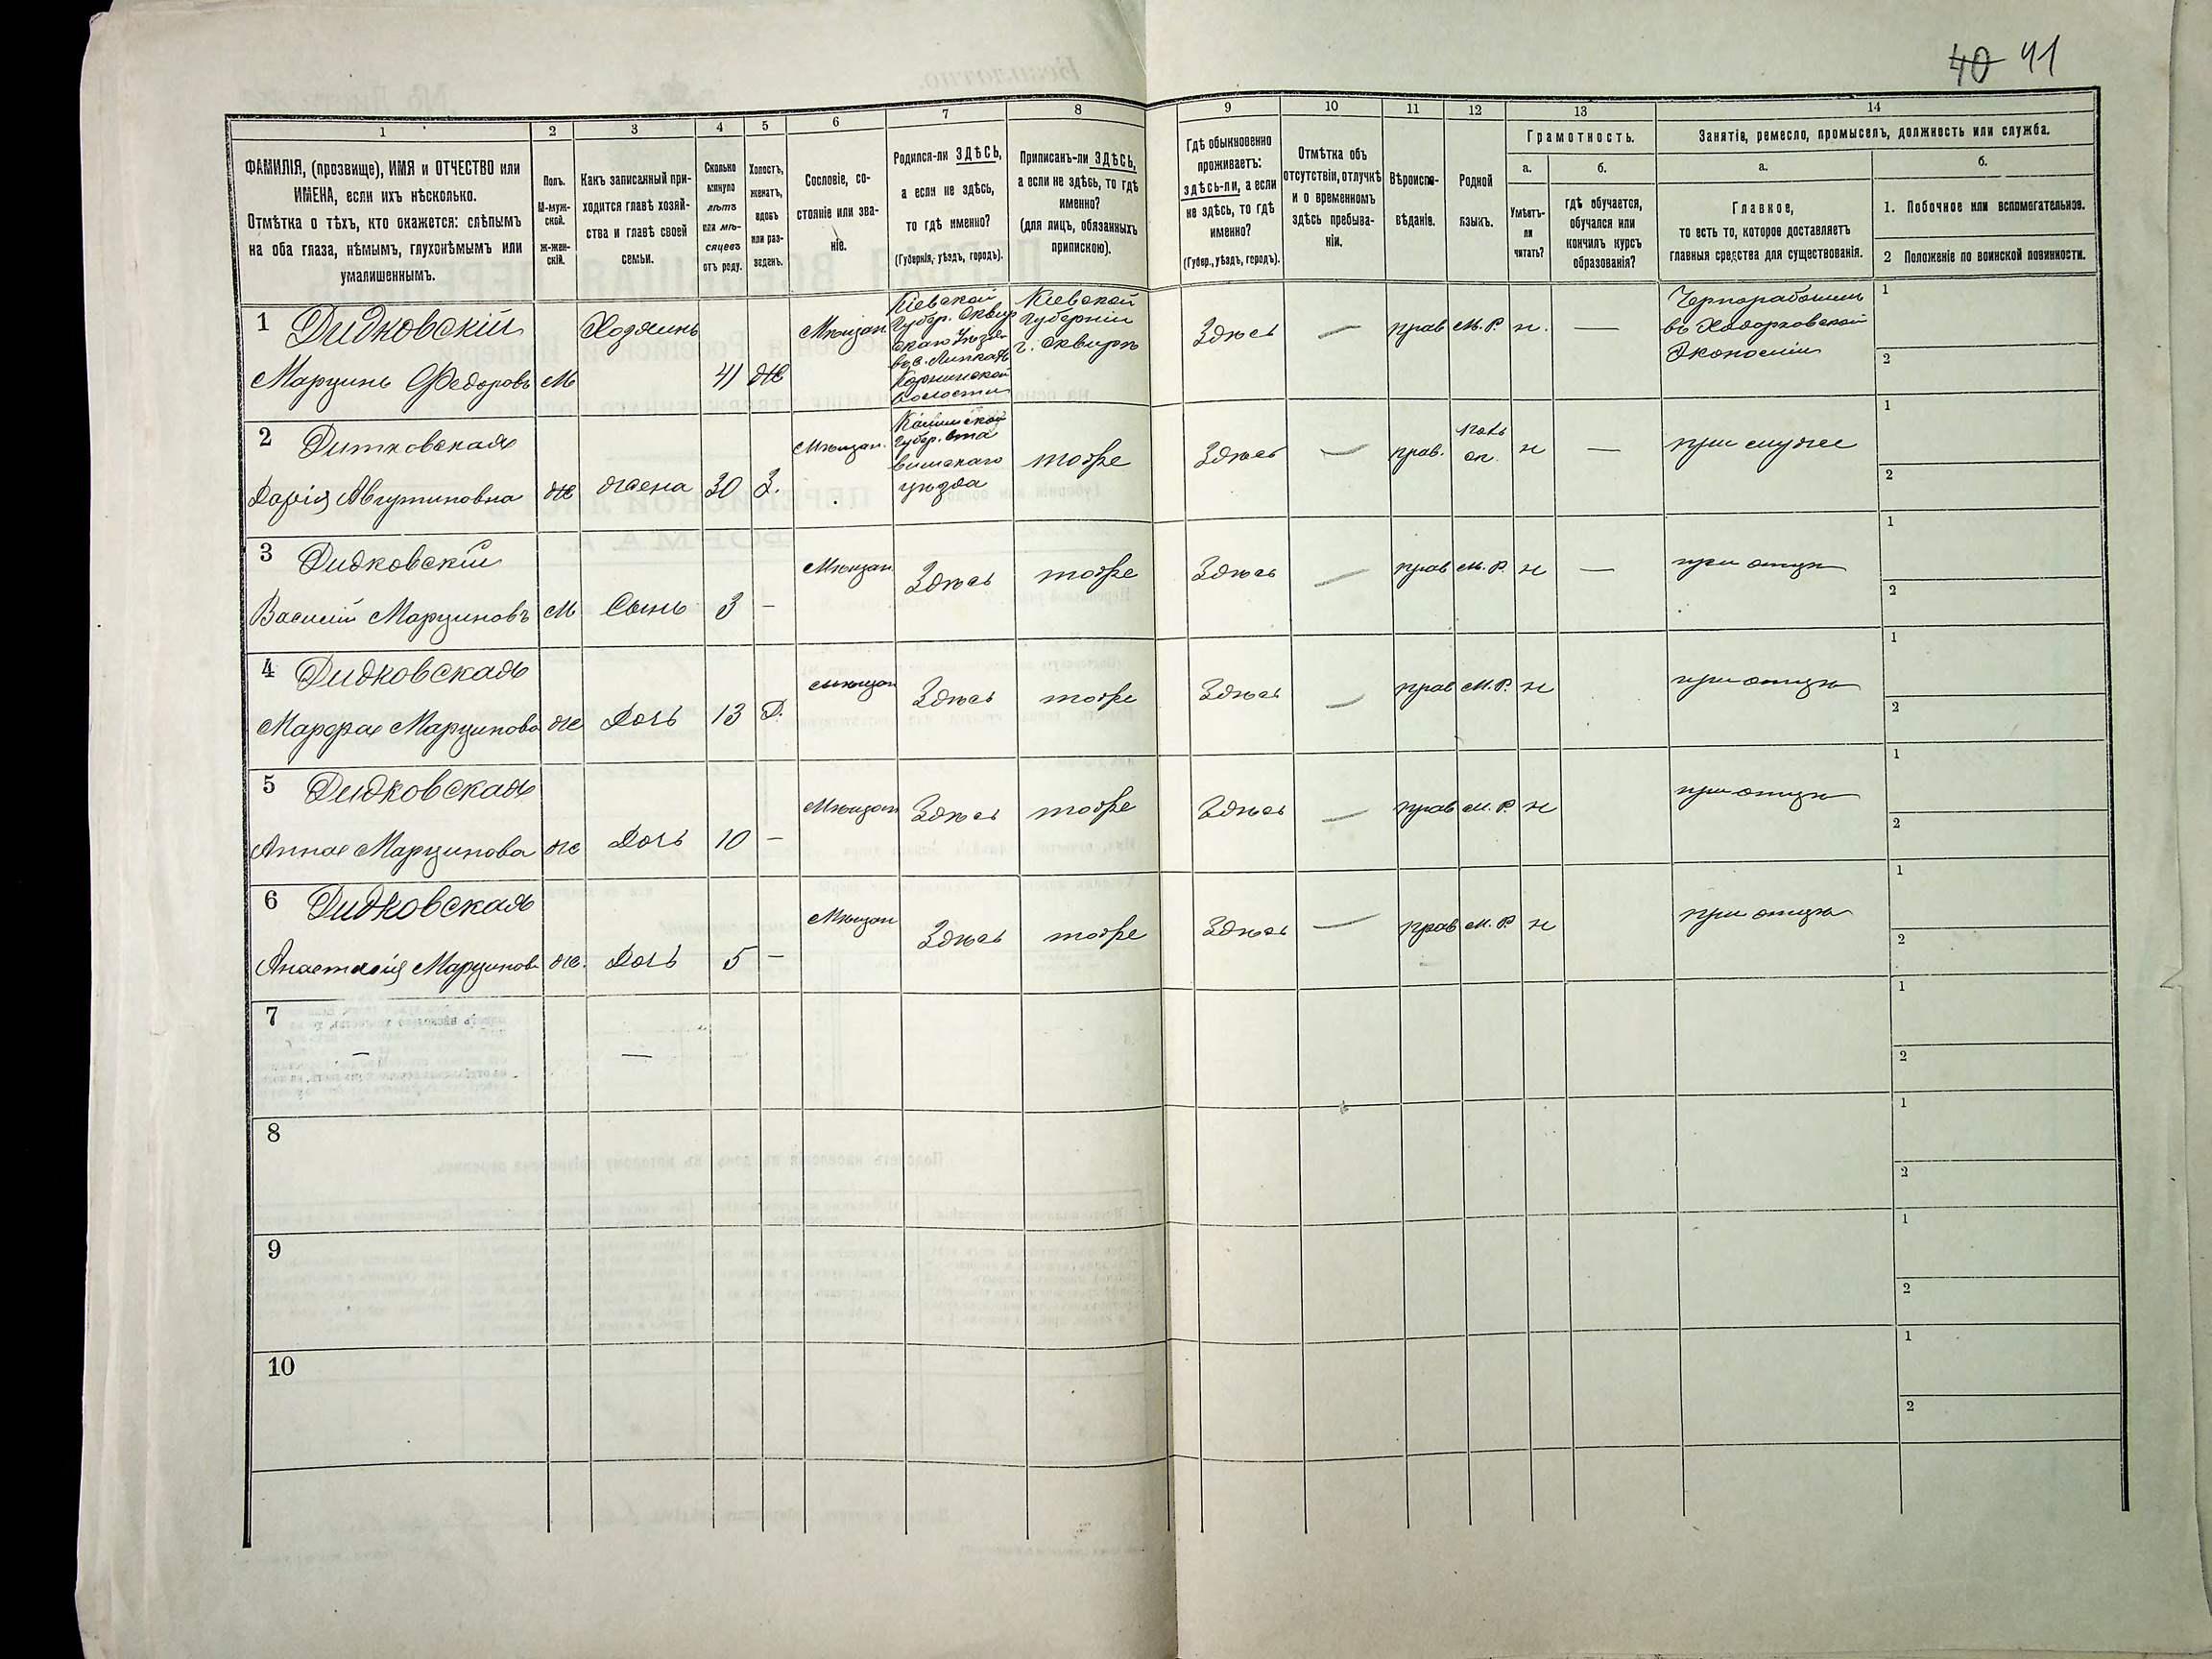 40 41
1 2 3 4 5 6 7 8 9 10 11 12 13 14
ФАМИЛІЯ, (прозвище), ИМЯ и ОТЧЕСТВО или
ИМЕНА, если ихъ нѣсколько.
Отмѣтка о тѣхъ, кто окажется: слѣпымъ
на оба глаза, нѣмымъ, глухонѣмымъ или
умалишеннымъ.
Полъ.
М-муж-
ской.
Ж-жен-
скій.
Какъ записанный при-
ходится главѣ хозяй-
ства и главѣ своей
семьи.
Сколько
минуло
лѣтъ
или мѣ-
сяцевъ
отъ роду.
Холостъ,
женатъ,
вдовъ
или раз-
веденъ.
Сословіе, со-
стояніе или зва-
ніе.
Родился-ли ЗДѢСЬ,
а если не здѣсь,
то гдѣ именно?
(Губернія, уѣздъ, городъ).
Приписанъ-ли ЗДѢСЬ,
а если не здѣсь, то гдѣ
именно?
(для лицъ, обязанныхъ
припискою).
Гдѣ обыкновенно
проживаетъ:
здѣсь-ли, а если
не здѣсь, то гдѣ
именно?
(Губер., уѣздъ, городъ).
Отмѣтка объ
отсутствіи, отлучкѣ
и о временномъ
здѣсь пребыва-
ніи.
Вѣроиспо-
вѣданіе.
Родной
языкъ.
Грамотность.
а.
Умѣетъ-
ли
читать?
б.
гдѣ обучается,
обучался или
кончилъ курсъ
образованія?
Занятія, ремесло, промыселъ, должность или служба.
а.
Главное,
то есть то, которое доставляетъ
главныя средства для существованія.
б.
1. Побочное или вспомогательное.
2 Положеніе по воинской повинности.
1 Дидковскій
Марцинъ Федоровъ
М
Хозяинъ
41
Ж
Мѣщан.
Кіевской
Губер. Сквир
скаго Уѣзда
въ с. Липкахъ
Корнинской
волости
Кіевской
Губерніи
г. Сквиръ
Здѣсь
—
прав
М. Р.
н.
—
Чернорабочимъ
въ Ходорковской
Экономіи
1
2
2 Дитковская
Дарія Августиновна
Ж
жена
30
З.
Мѣщан.
Губер.
уѣзда
тоже
Здѣсь
—
прав.
н
—
при мужѣ
1
2
3 Дидковскій
Василій Марциновъ
М
Сынъ
3
—
Мѣщан.
Здѣсь
тоже
Здѣсь
—
прав
М. Р.
н
—
при отцѣ
1
2
4 Дидковская
Марфа Марцинова
ж
Дочь
13
Д.
мѣщан
Здѣсь
тоже
Здѣсь
—
прав
М. Р.
н
при отцѣ
1
2
5 Дидковская
Анна Марцинова
ж
Дочь
10
—
Мѣщан
Здѣсь
тоже
Здѣсь
—
прав
М. Р.
н
при отцѣ
1
2
6 Дидковская
Анастасія Марцинов
ж.
Дочь
5
—
Мѣщан
Здѣсь
тоже
Здѣсь
—
прав
М. Р.
н
при отцѣ
1
2
7
— —
1
2
8
1
2
9
1
2
10
1
2